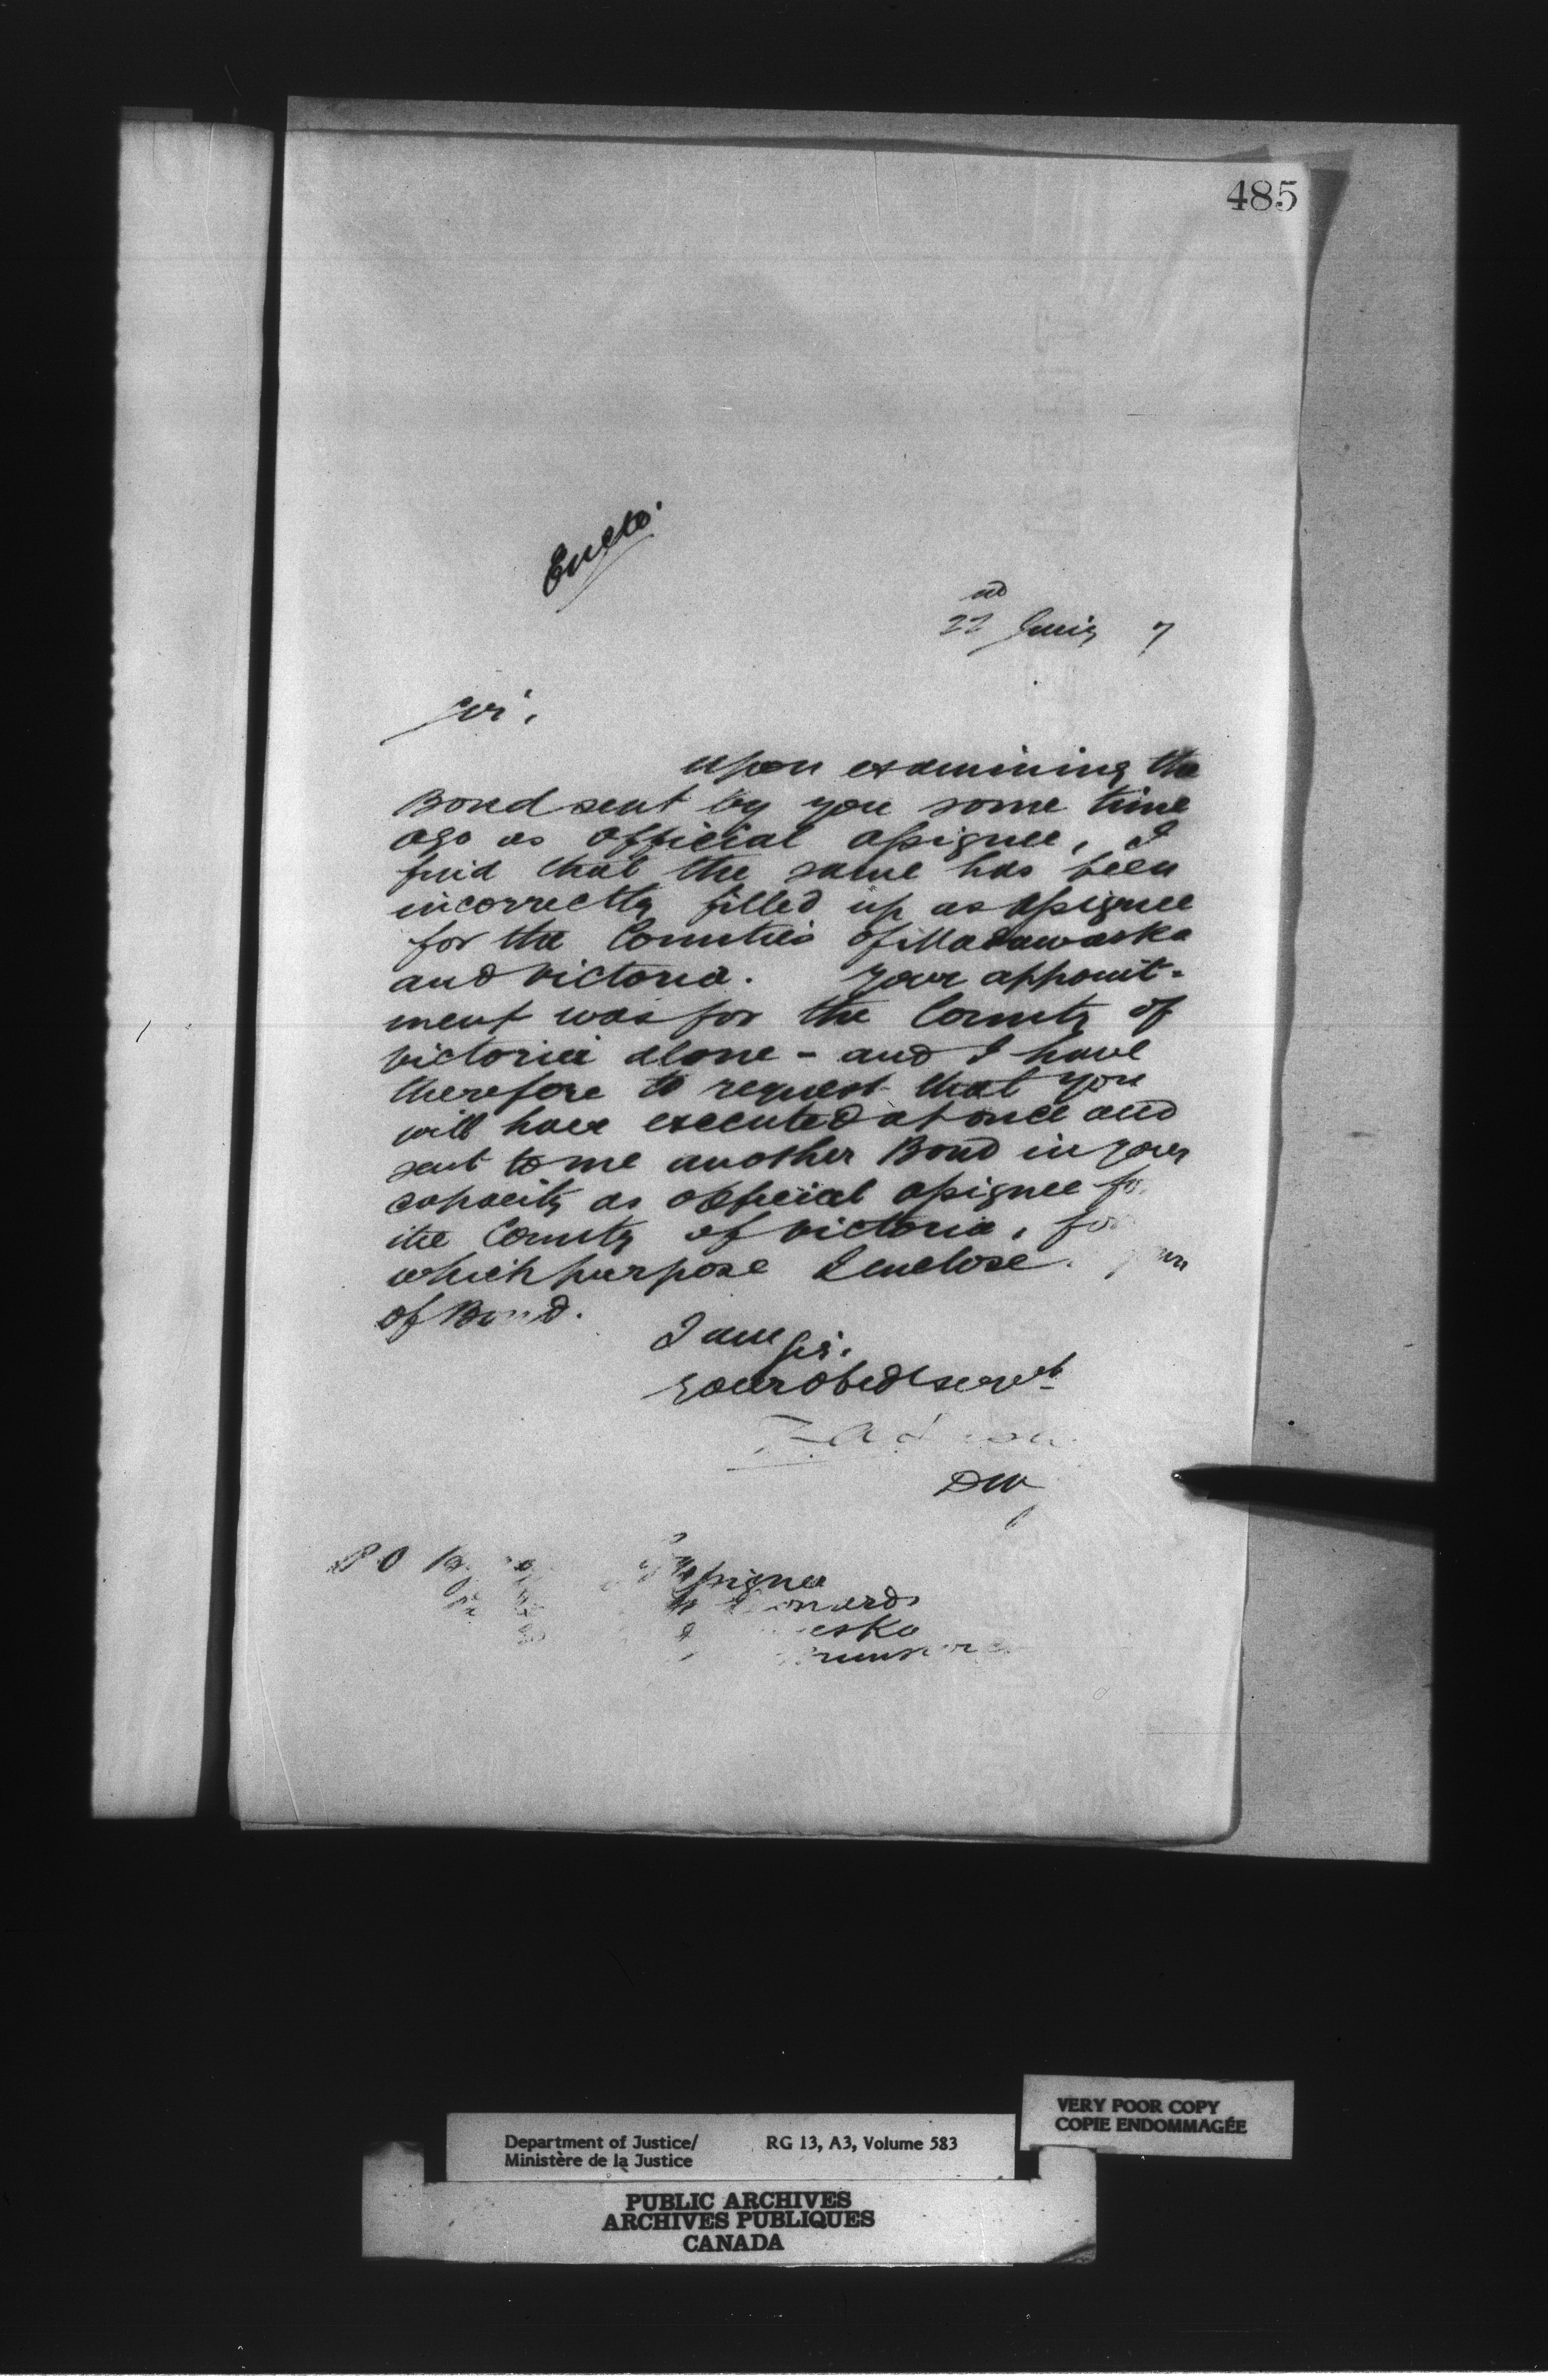 485
Enclo.
22nd June 7
Sir,
Upon examining the
Bond sent by you some time
ago as Official Assignee, I
find that the same has been
incorrectly filled up as Assignee
for the Counties of Madawaska
and Victoria. Your appoint-
ment was for the County of
Victoria alone - and I have
therefore to request that you
will have executed at once and
sent to me another Bond in your
capacity as Official Assignee for
the County of Victoria, for
which purpose I enclose
of Bond.
I am Sir.
Your obedt servt
P O
Assignee
Department of Justice/ RG 13, A3, Volume 583
Ministère de la Justice
VERY POOR COPY
COPIE ENDOMMAGÉE
PUBLIC ARCHIVES
ARCHIVES PUBLIQUES
CANADA